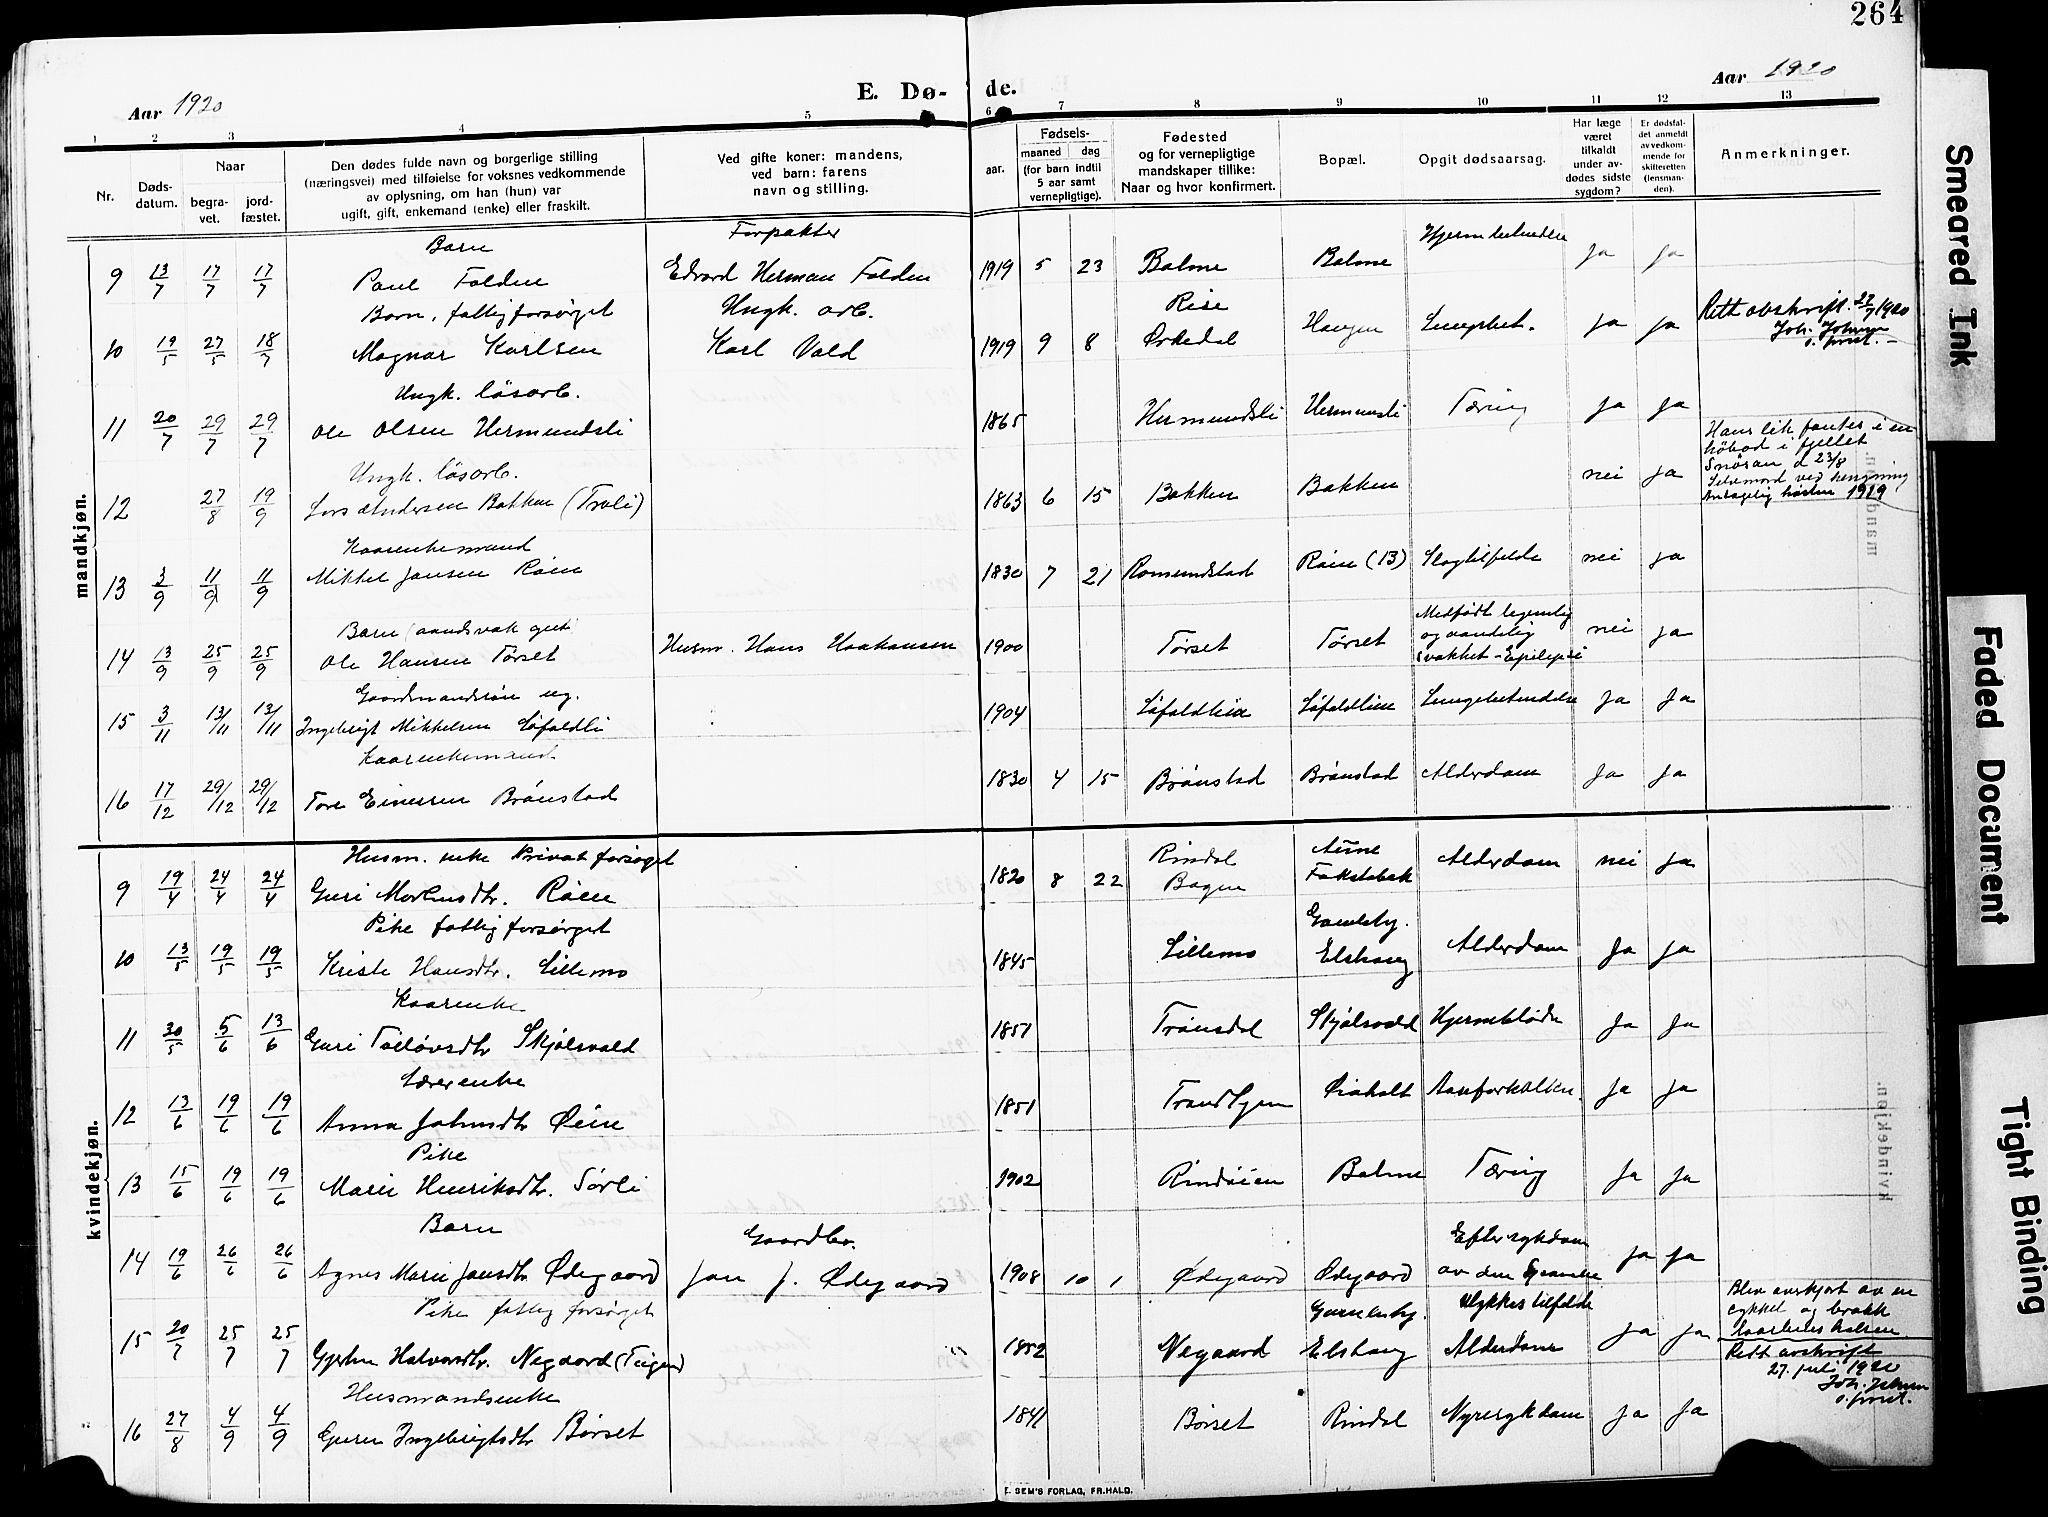 264
Aar 1920
E. Dø-
de.
Aar 1920
1 2 3 4 5 6 7 8 9 10 11 12 13
Nr.
Døds-
datum.
Naar
begra-
vet.
jord-
fæstet.
Den dødes fulde navn og borgerlige stilling
(næringsvei) med tilføielse for voksnes vedkommende
av oplysning, om han (hun) var
ugift, gift, enkemand (enke) eller fraskilt.
Ved gifte koner: mandens,
ved barn: farens
navn og stilling.
aar.
Fødsels-
maaned dag
(for barn indtil
5 aar samt
vernepligtige).
Fødested
og for vernepligtige
mandskaper tillike:
Naar og hvor konfirmert.
Bopæl.
Opgit dødsaarsag.
Har læge
været
tilkaldt
under av-
dødes sidste
sygdom?
Er dødsfal-
det anmeldt
av vedkom-
mende før
skifteretten
(lensman-
den).
Anmerkninger.
mandkjøn.
Barn Forpakter Hjernebetændelse
9 13/7 17/7 17/7 Paul Folden Edvard Herman Folden 1919 5 23 Bolme Bolme ja ja
Barn, fattigforsørget Ungk. arb. Rise
10 19/5 27/5 18/7 Magnar Karlsen Karl Vold 1919 9 8 Orkedal Haugen Lungebet. ja ja
Rett avskrift 22/7 1920
Joh. Johnsen
s. prest.
Ungk. løsarb.
11 20/7 29/7 29/7 Ole Olsen Hermundsli 1865 Hermundsli Hermundsli Tæring ja ja
Ungk. løsarb.
12 27/8 19/9 Lars Andersen Bakken (Troli) 1863 6 15 Bakken Bakken nei ja
Hans lik fantes i en
høbod i fjellet
Snøsan d 23/8
Selvmord ved hengning
Antagelig høsten 1919
Kaarenkemand
13 3/9 11/9 11/9 Mikkel Jansen Røen 1830 7 21 Romundstad Røen (13) Slagtilfelde nei ja
Barn (aandsvak gut)
14 13/9 25/9 25/9 Ole Hansen Tørset Husm. Hans Haakansen 1900 Tørset Tørset nei ja
Medfødt legemlig
og aandelig
svakhet - Epilepsi
Gaardmandssøn ug.
15 3/11 13/11 13/11 Ingebrigt Mikkelsen Løfaldli 1904 Løfaldlien Løfaldlien Lungebetændelse Ja Ja
Kaarenkemand
16 17/12 29/12 29/12 Tore Einersen Brønstad 1830 4 15 Brønstad Brønstad Alderdom Ja Ja
kvindekjøn.
Husm. enke Privat forsørget Rindal Aune
9 19/4 24/4 24/4 Guri Mortensdtr. Røen 1820 8 22 Bagen Alderdom nei Ja
Pike fattig forsørget Gamlehj.
10 13/5 19/5 19/5 Kristi Hansdtr. Lillemo 1845 Lillemo Elshaug Alderdom Ja Ja
Kaarenke
11 30/5 5/6 13/6 Guri Tølløvsdtr Skjølsvold 1851 Trønsdal Skjølsvold Hjerneblødn Ja Ja
Lærerenke
12 13/6 19/6 19/6 Anna Johnsdtr Øien 1851 Trondhjem Aareforkalken. Ja Ja
Pike
13 15/6 19/6 19/6 Marie Henriksdtr. Sørli 1902 Rindøien Bolme Tæring Ja Ja
Barn Gaardbr. Efter sykdom
14 19/6 26/6 26/6 Agnes Marie Jansdtr Ødegaard Jon J. Ødegaard 1908 10 1 Ødegaard Ødegaard av den Spanske Ja Ja
Pike fattig forsørget Gamlehj. Ulykkestilfelde
15 20/7 25/7 25/7 Halvorsdtr. Negaard (Teigen) 1852 Negaard Elshaug Alderdom Ja Ja
Blev overkjørt av en
cykkel og brækk
laarbenets halsen
Rett avskrift
27. juli 1920
Joh. Johnsen
s. prest.
Husmandsenke
16 27/8 4/9 4/9 Guru Ingebrigtsdtr Børset 1841 Børset Rindal Nyresykdom Ja Ja
E. SEM'S FORLAG, FR.HALD.
Smeared Ink
Faded Document
Tight Binding